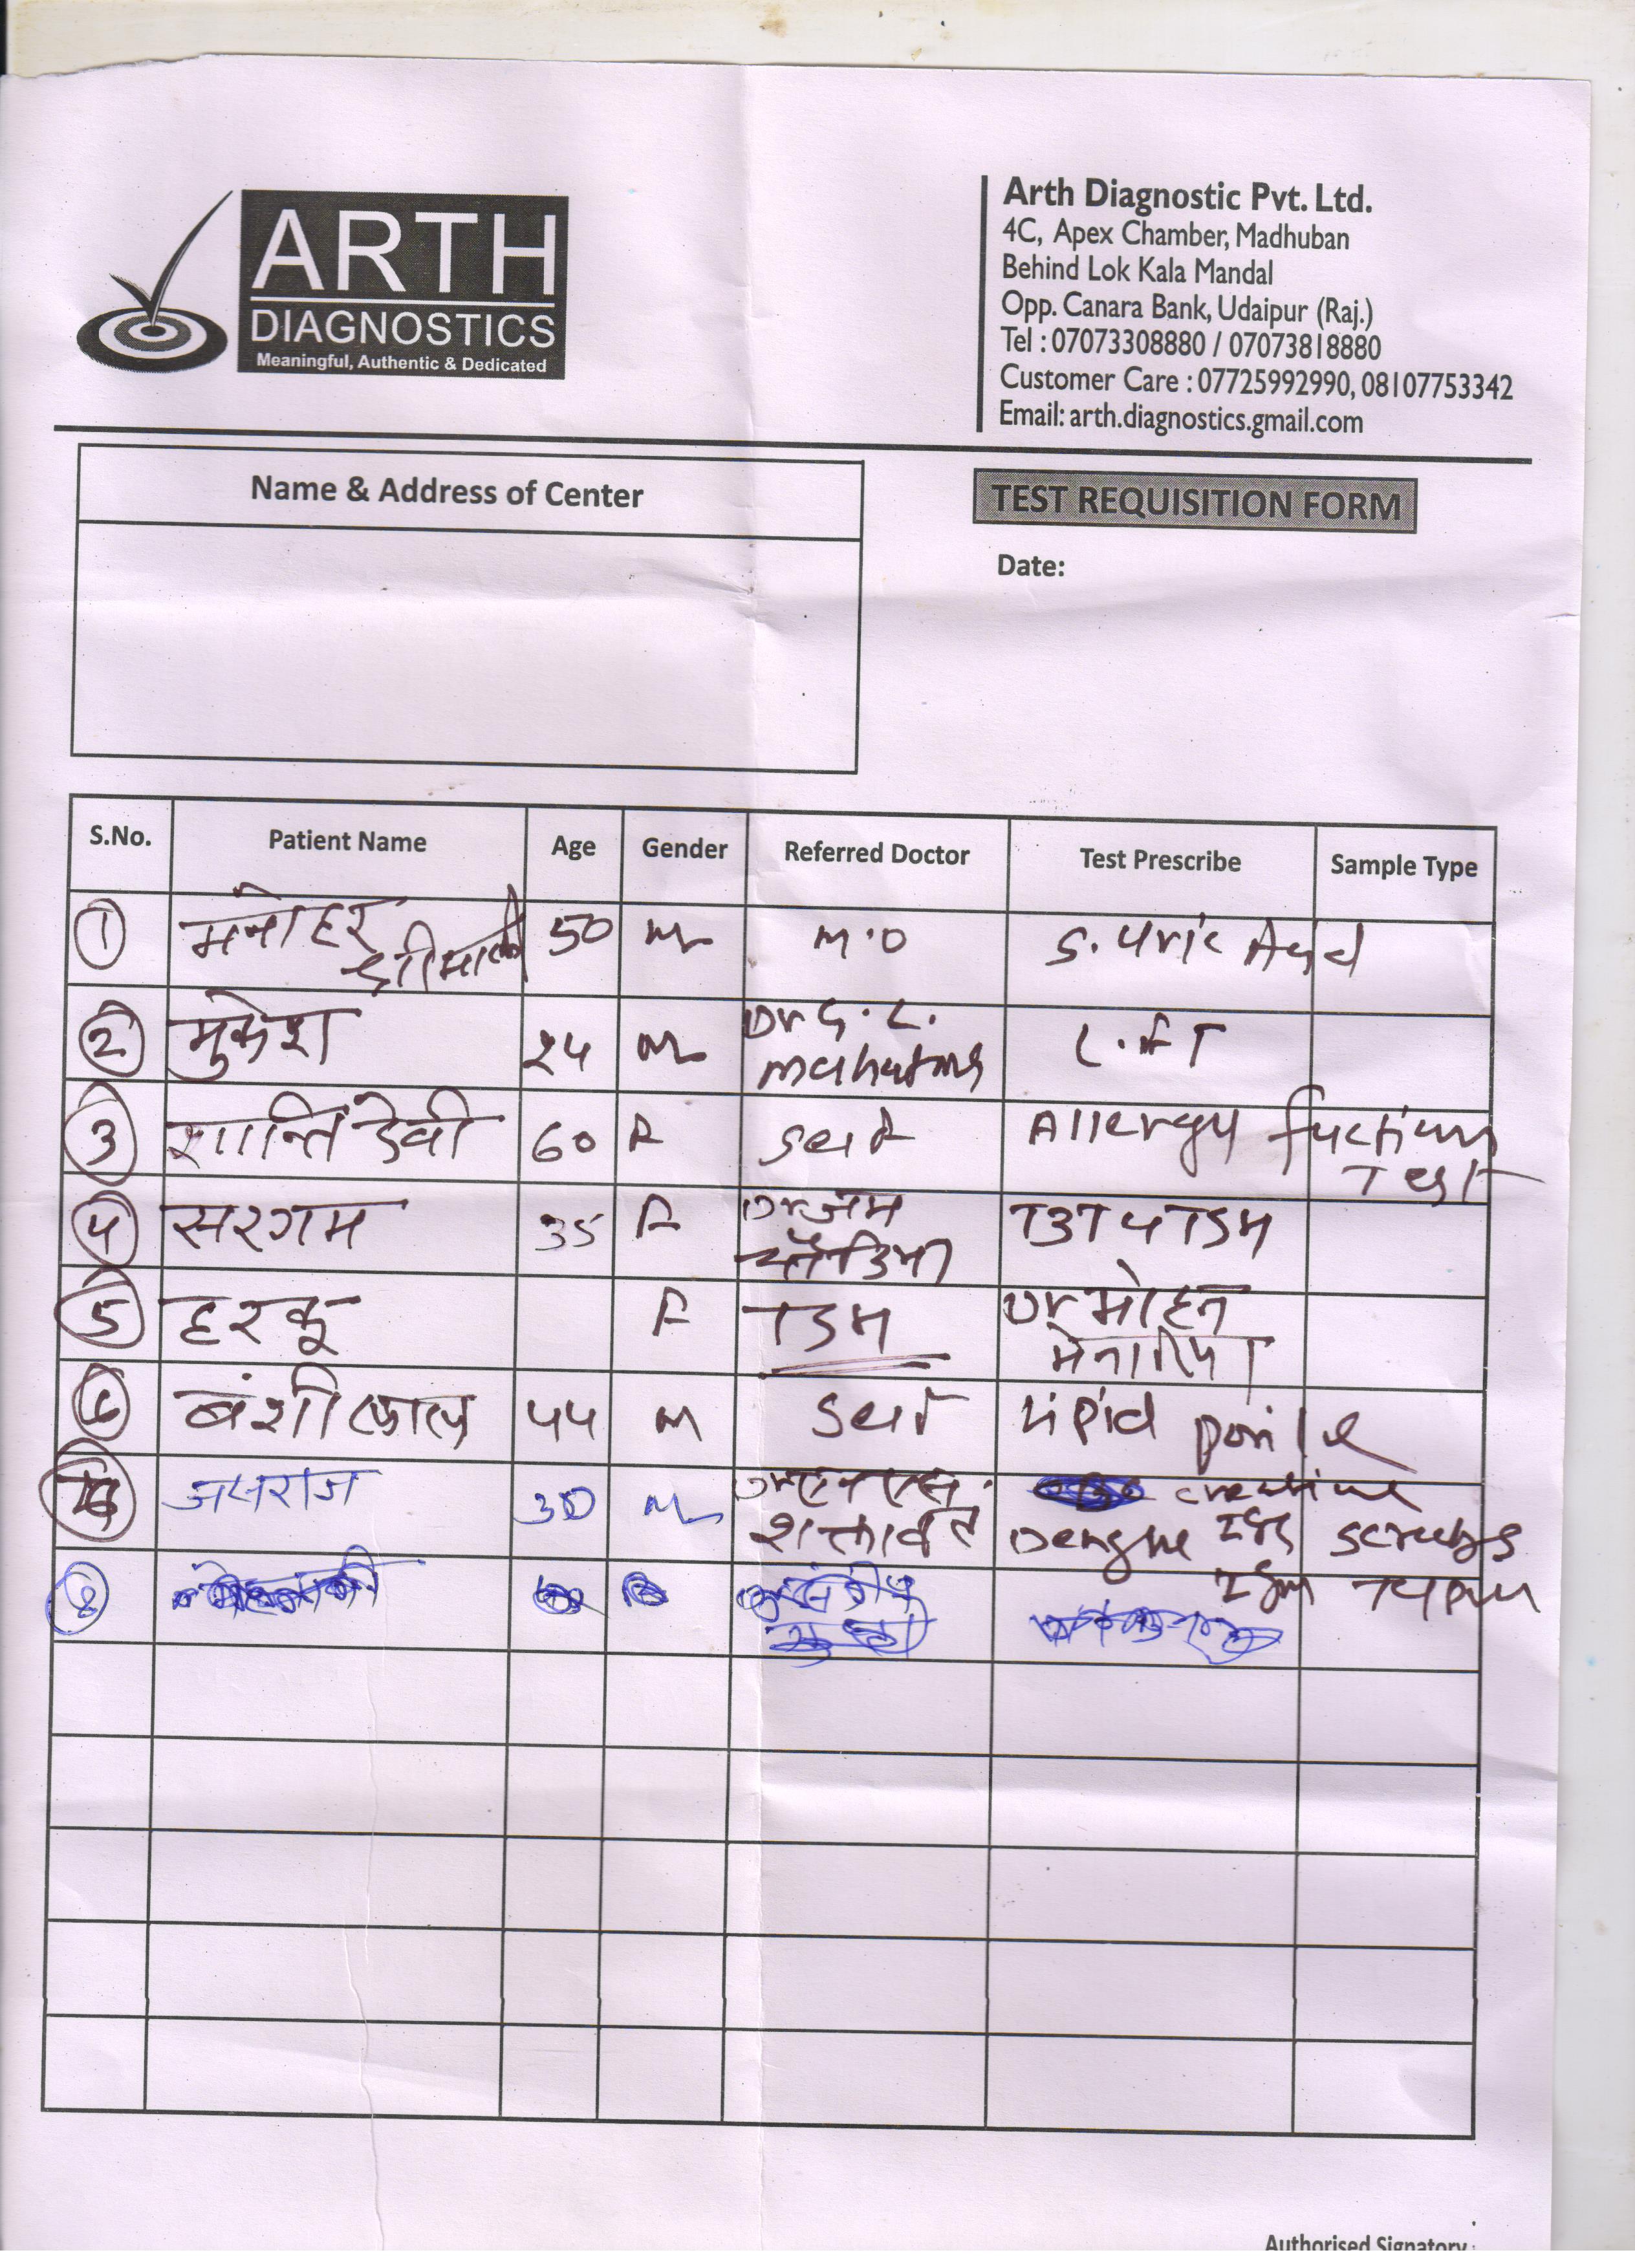 ARTH
DIAGNOSTICS
Meaningful, Authentic & Dedicated
Arth Diagnostic Pvt. Ltd.
4C, Apex Chamber, Madhuban
Behind Lok Kala Mandal
Opp. Canara Bank, Udaipur (Raj.)
Tel : 07073308880 / 07073818880
Customer Care : 07725992990, 08107753342
Email: arth.diagnostics.gmail.com
Name & Address of Center
TEST REQUISITION FORM
Date:
S.No. Patient Name Age Gender Referred Doctor Test Prescribe Sample Type
1 मनोहर श्रीमाली 50 M M.O S. Uric Acid
2 मुकेश 24 M Dr G. L. L.F T
3 शान्ति देवी 60 F Self Allergy fuction Test
4 सरगम 35 F Dr T3T4TSH
5 हरकू F TSH Dr मोहन
मेनारिया
6 बंशीलाल 44 M Self Lipid
30 M शक्तावत Dengue IgG
IgM
8
Authorised Signatory